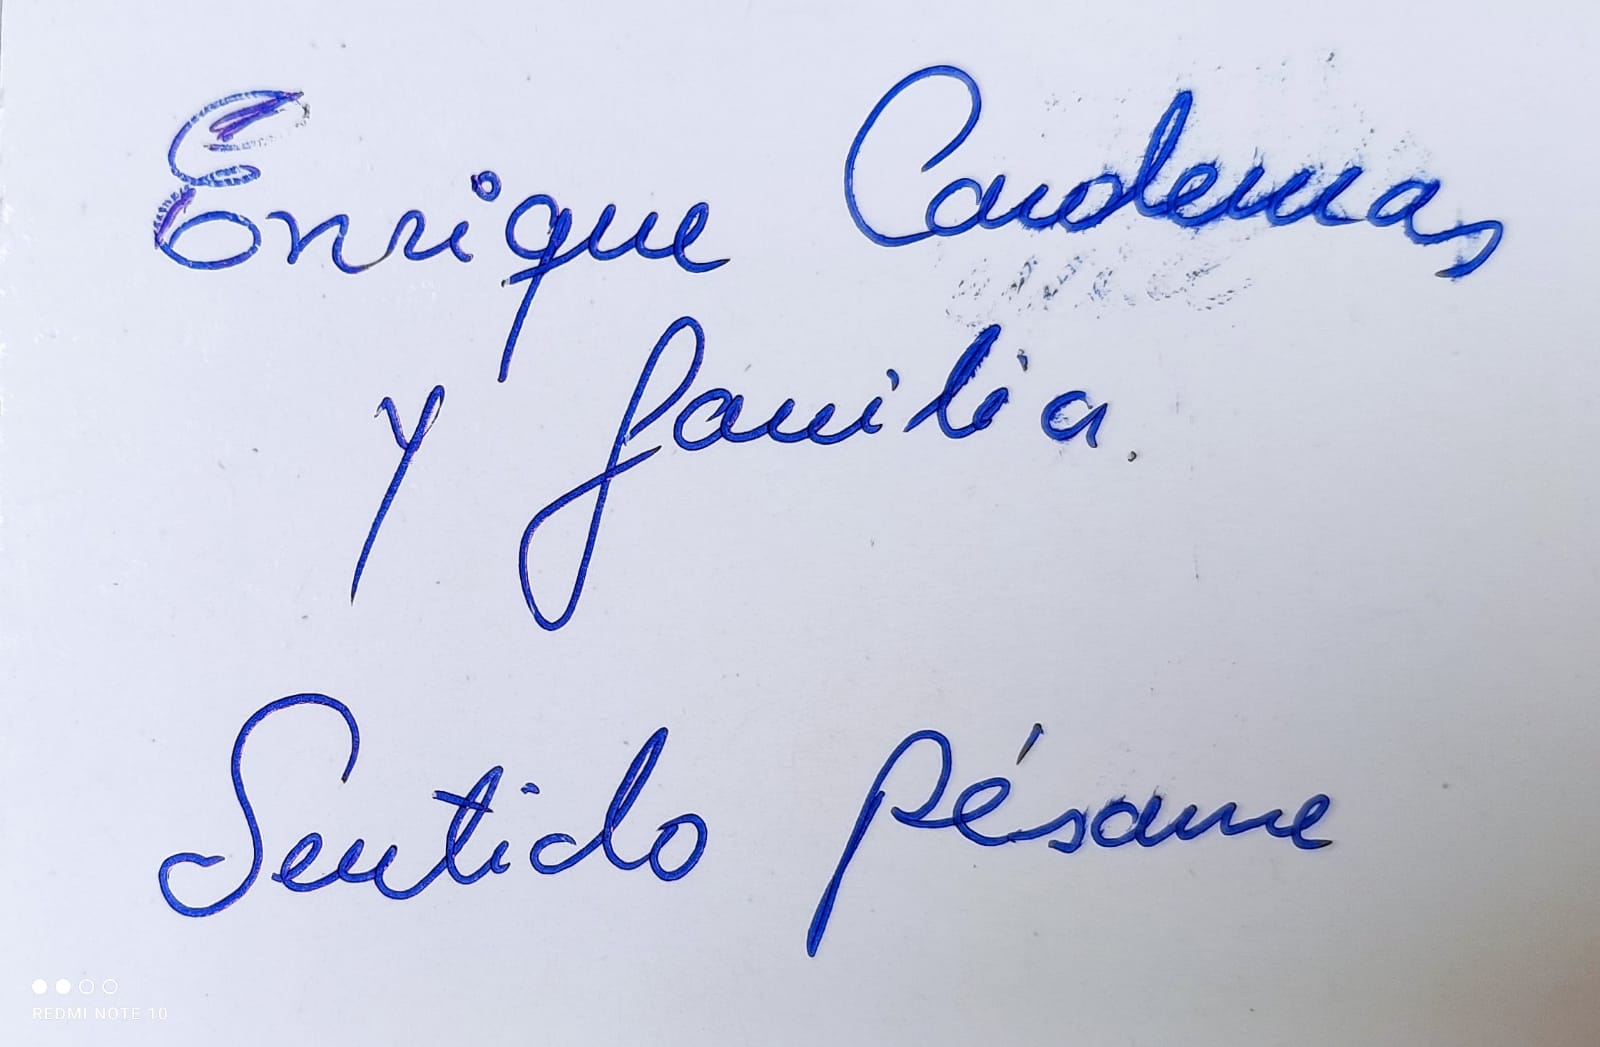 Enrique Cardemas
y familia.
Sentido pésame
REDMI NOTE 10